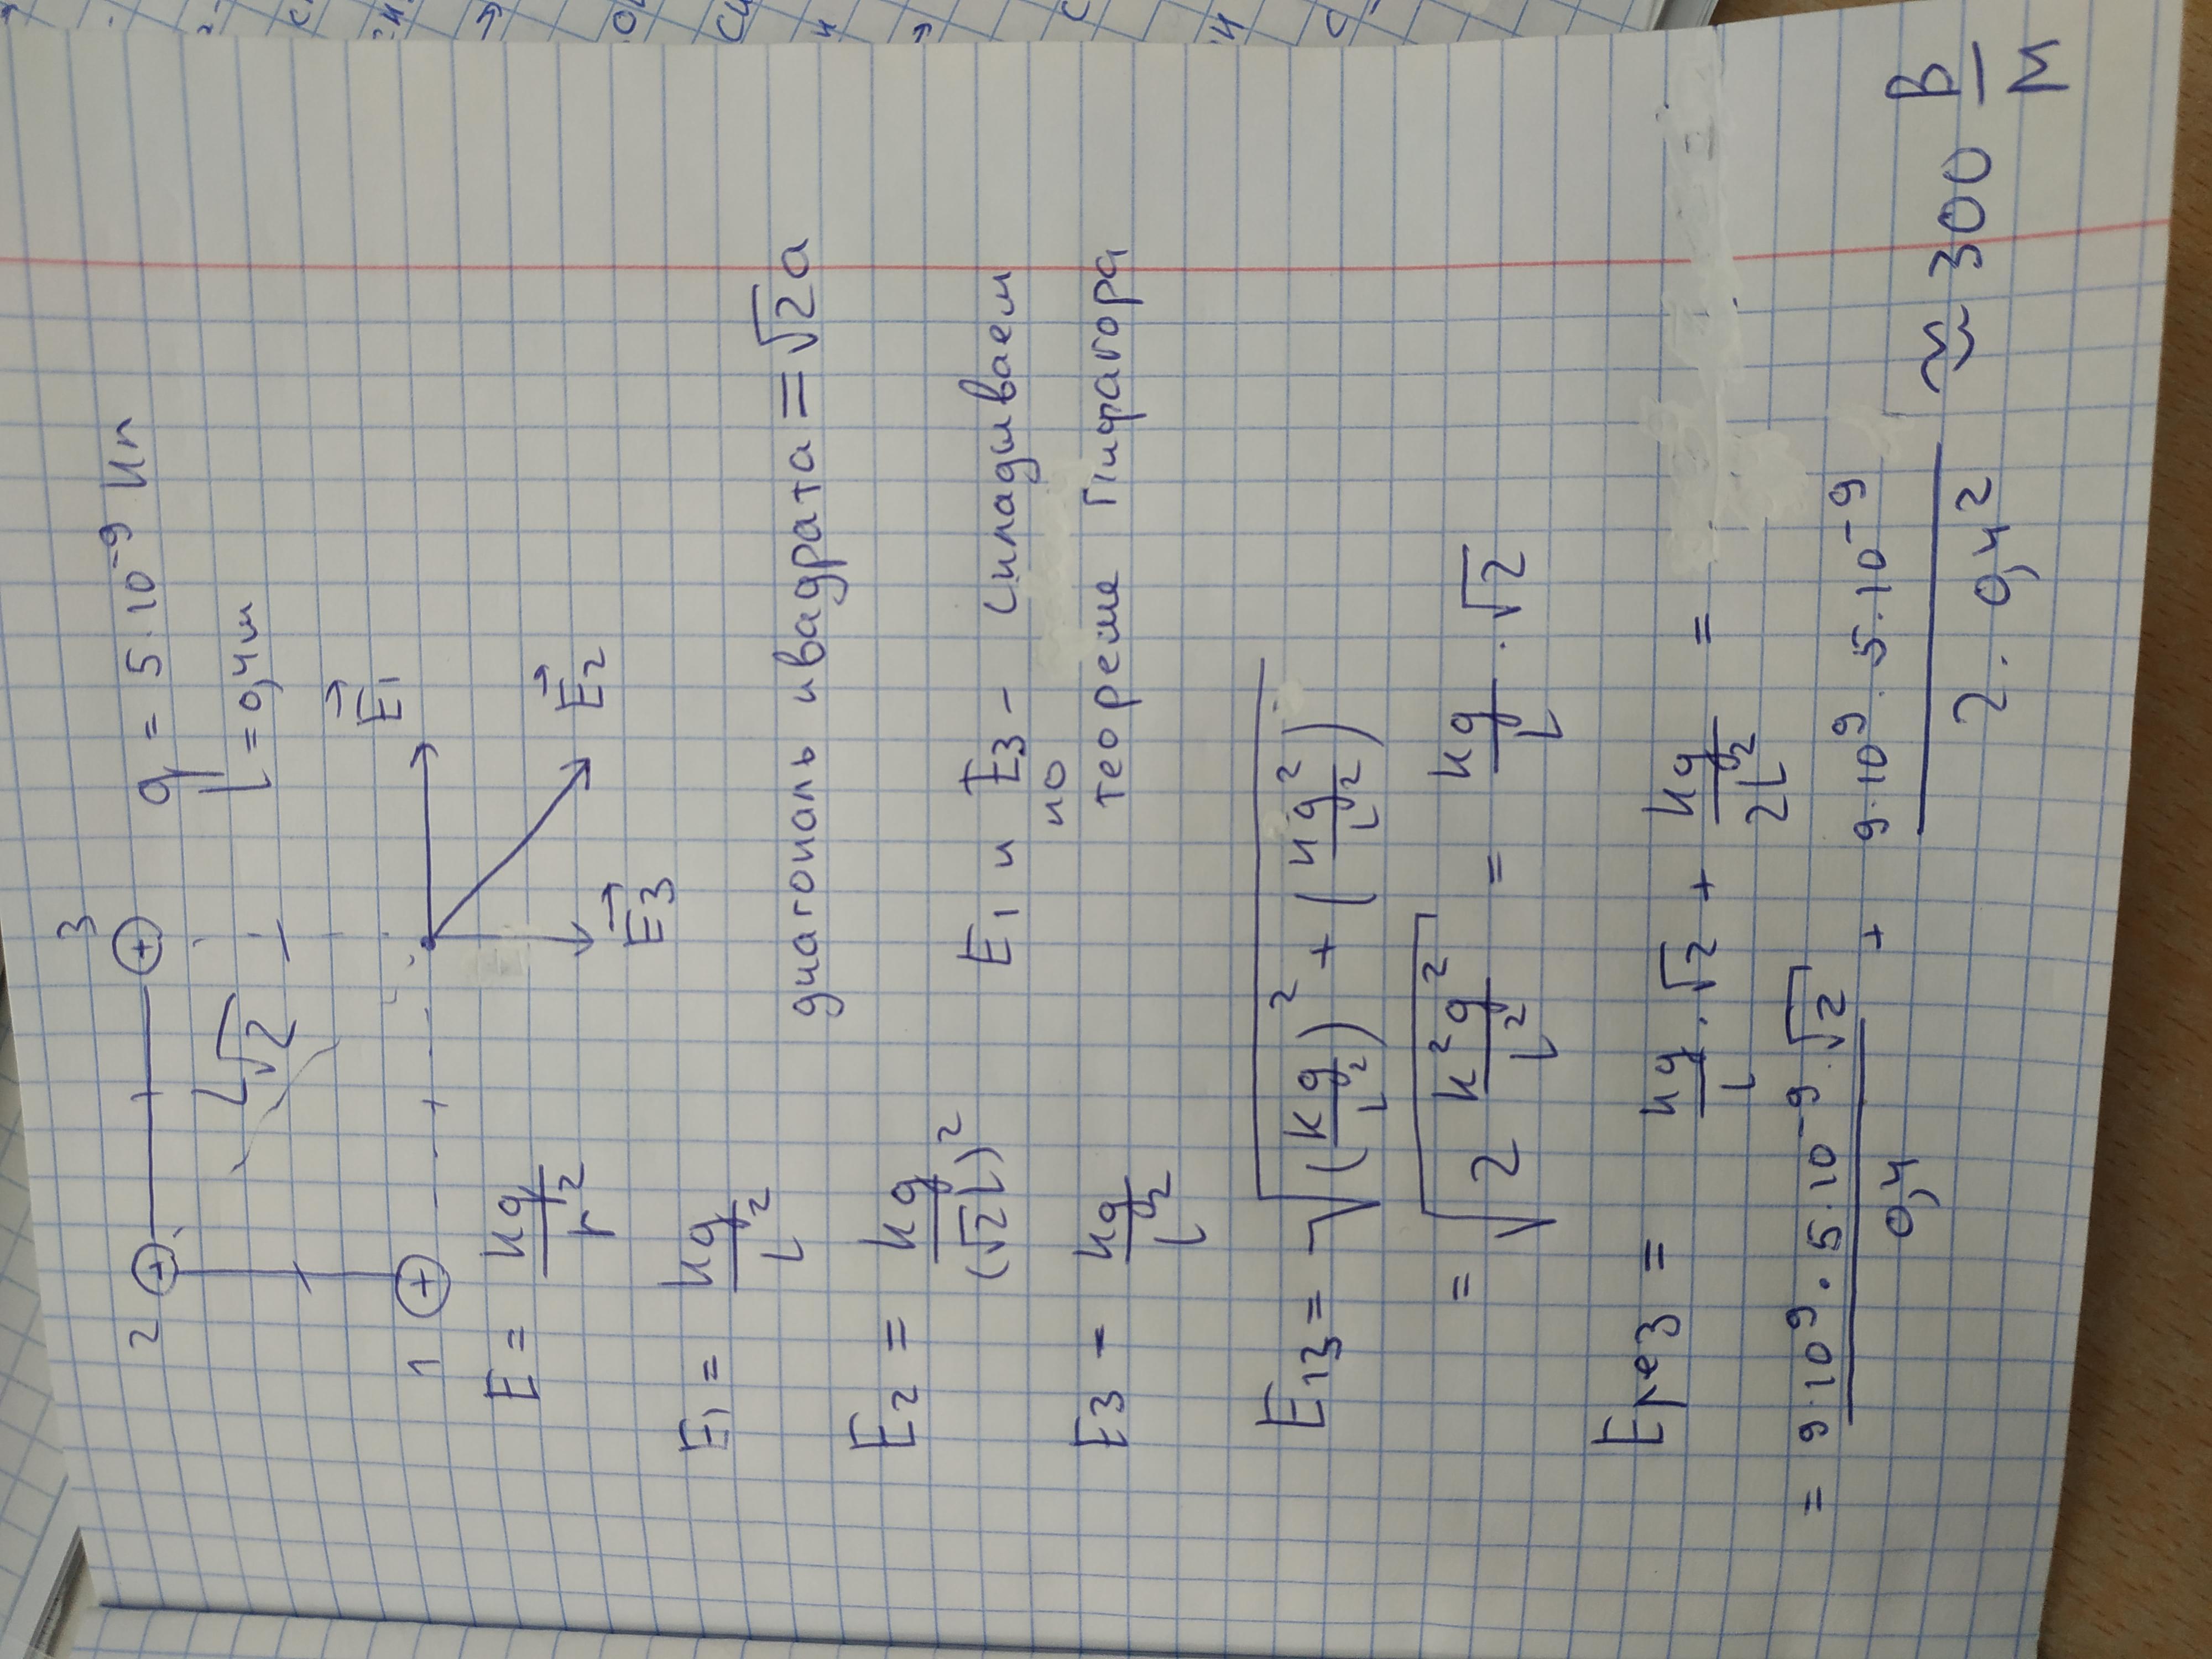 2 + + 3
q = 5 · 10⁻⁹ Кл
L√2
L = 0,4м
E⃗₁
1 +
E⃗₂
E = kq/r²
E⃗₃
E₁ = kq/L²
диагональ квадрата = √2a
E₂ = kq/(√2L)²
E₁ и E₃ - складываем
по
E₃ - kq/L²
теореме Пифагора
E₁₃ = √((kq/L²)² + (kq²/L²)
= √(2 k²q²/L²) = kq/L · √2
Eрез = kq/L · √2 + kq/2L² =
= 9·10⁹ · 5·10⁻⁹ · √2/0,4 + 9·10⁹ · 5·10⁻⁹/2 · 0,4² ≈ 300 В/М